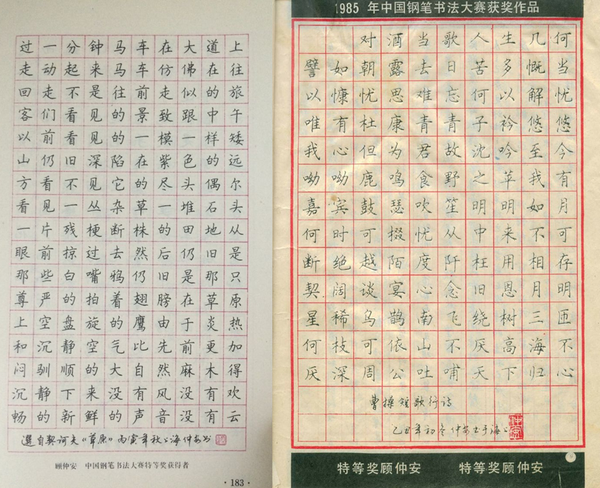 过一分钟马车在大道上
走动起来马车仿佛在往
回走不是往前走似的旅
客们看见的景致跟中午
以前看见的一模一样矮
山仍旧深陷在紫色的远
方看不见它的尽头偶尔
看见一丛杂草一堆石头
一片残梗断株的田地从
眼前掠过去然后仍旧是
那些白嘴鸦仍旧是那只
尊严的拍着翅膀在草原
上空盘旋的鹰由于炎热
和沉静空气比先前更加
闷驯顺的大自然麻木得
沉静下来没有风没有欢
畅的新鲜的声音没有云
选自契诃夫《草原》丙寅年秋上海仲安书
顾仲安 中国钢笔书法大赛特等奖获得者
·183·
1985 年中国钢笔书法大赛获奖作品
对酒当歌人生几何
譬如朝露去日苦多慨当
以慷忧思难忘何以解忧
唯有杜康青青子衿悠悠
我心但为君故沈吟至今
呦呦鹿鸣食野之苹我有
嘉宾鼓瑟吹笙明明如月
何时可掇忧从中来不可
断绝越陌度阡枉用相存
契阔谈宴心念旧恩月明
星稀乌鹊南飞绕树三匝
何枝可依山不厌高海不
厌深周公吐哺天下归心
曹操短歌行诗
乙丑年初冬仲安书于上海
特等奖顾仲安 特等奖顾仲安